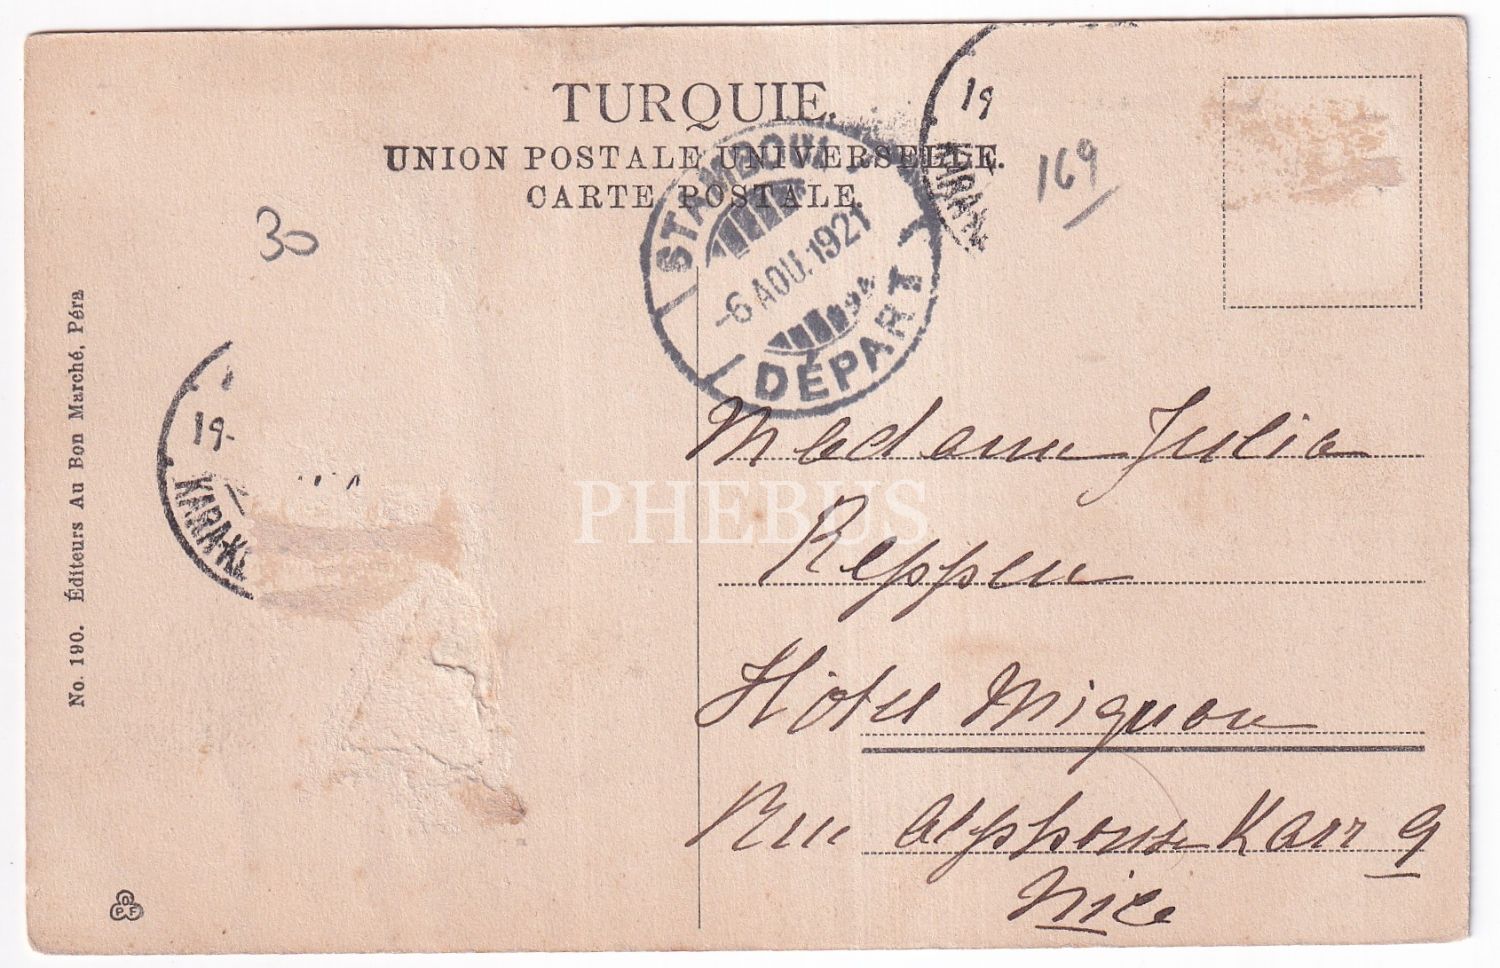 TURQUIE.
UNION POSTALE UNIVERSELLE.
CARTE POSTALE.
STAMBOUL
-6 AOU. 1921
DÉPART
19
169
30
19-
KARA-KE
No. 190. Éditeurs Au Bon Marché, Péra
Madame Julia
Hôtel Mignon
Rue Alphonse Karr 9
Nice
PHEBUS
O
P F